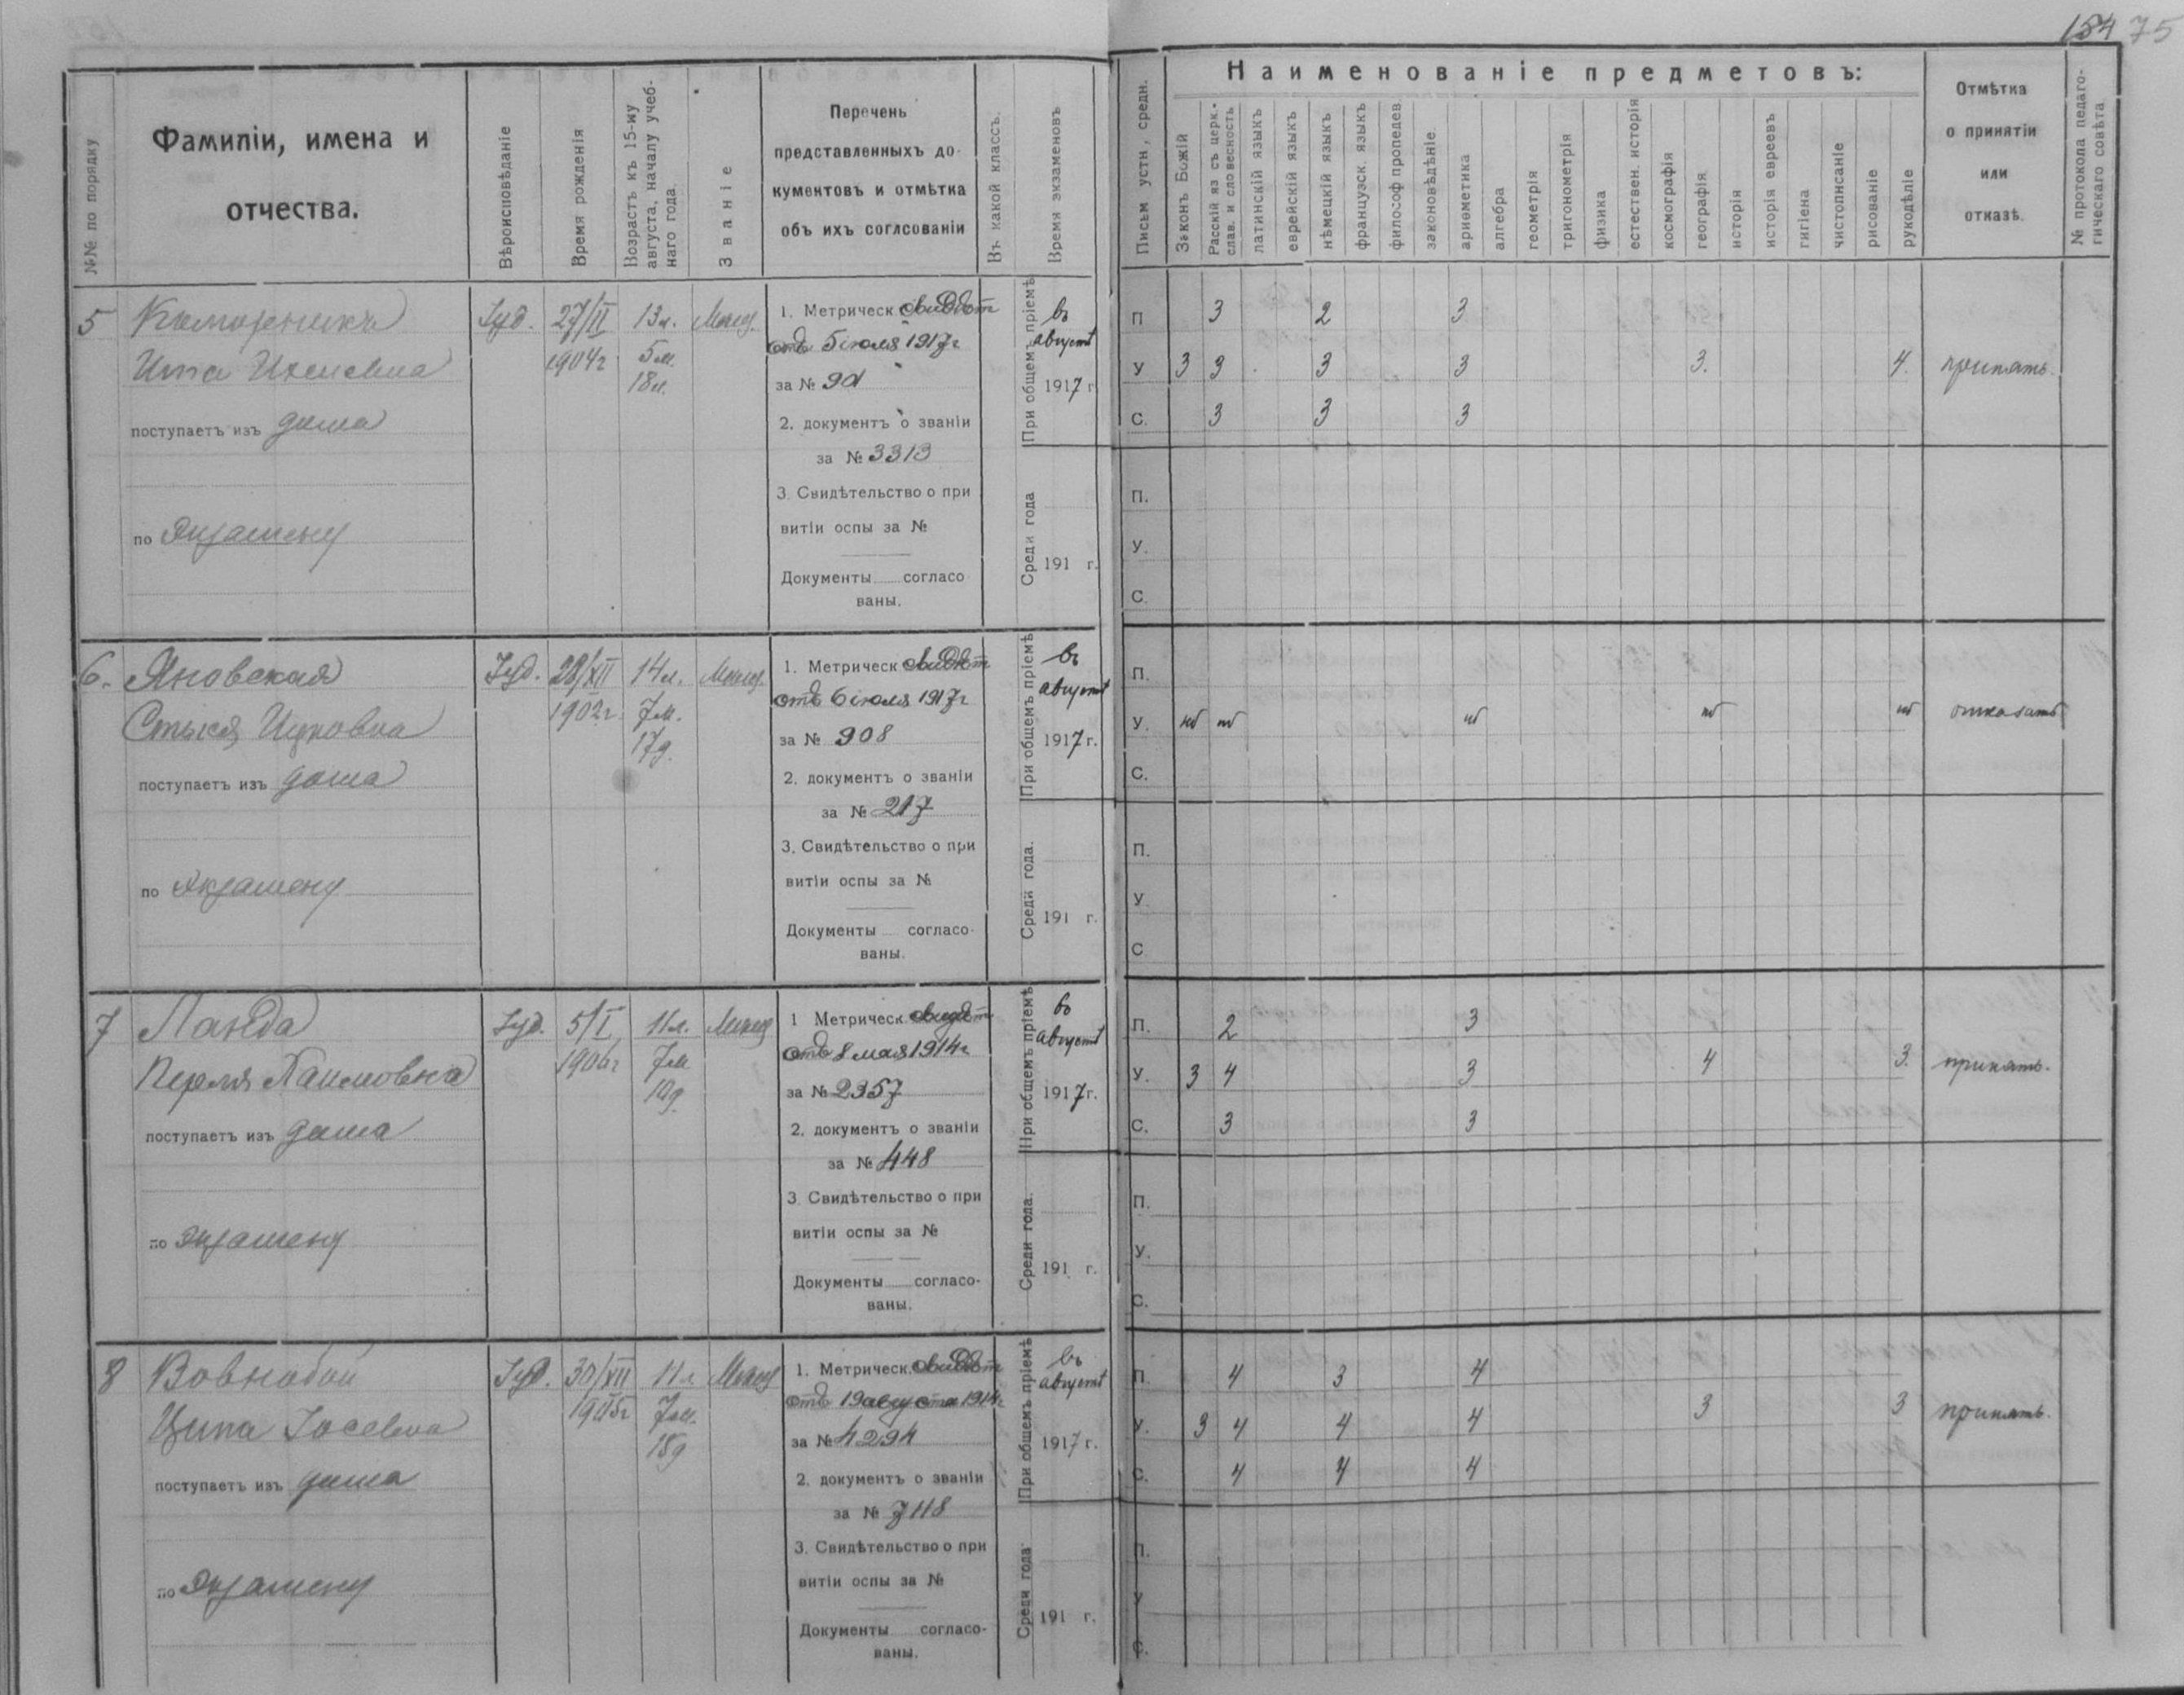 154 75
№№ по порядку
Фамиліи, имена и
отчества.
Вѣроисповѣданіе
Время рожденія
Возрастъ къ 15-му
августа, началу учеб-
наго года.
Званіе
Перечень
представленныхъ до-
кументовъ и отмѣтка
объ ихъ соглсованіи
Въ какой классъ.
Время экзаменовъ
Письм устн, средн.
Наименованіе предметовъ:
Законъ Божій
Расскій яз съ церк.-
слав. и словесность
латинскій языкъ
еврейскій языкъ
нѣмецкій языкъ
французск. языкъ
философ пропедев
законовѣдѣніе
ариѳметика
алгебра
геометрія
тригонометрія
физика
естествен. исторія
космографія
географія
исторія
исторія евреевъ
гигіена
чистописаніе
рисованіе
рукодѣліе
Отмѣтка
о принятіи
или
отказѣ.
№ протокола педаго-
гическаго совѣта.
5
Ита
поступаетъ изъ дома
по экзамену
Іуд.
27/II
1904г
13л.
5м.
18д.
Мѣщ.
1. Метрическ свидѣт
отъ 5 іюля 1917г
за № 901
2. документъ о званіи
за № 3313
3. Свидѣтельство о при
витіи оспы за №
Документы согласо
ваны.
При общемъ пріемѣ
въ
августѣ
1917 г
Среди года
191 г.
П 3 2 3
У 3 3 3 3 3. 4.
С. 3 3 3
принять.
П.
У.
С.
6.
Яновская
Стыся Ицковна
поступаетъ изъ дома
по экзамену
Іуд.
28/XII
1902г.
14л.
7м.
17д.
Мѣщ.
1. Метрическ свидѣт
отъ 6 іюля 1917г
за № 908
2. документъ о званіи
за № 217
3. Свидѣтельство о при
витіи оспы за №
Документы согласо-
ваны.
При общемъ пріемѣ
въ
августѣ
1917 г.
Среди года.
191 г.
П.
У. нб нб нб нб нб
С.
отказать
П.
У.
С
7
Ланда
Перля Хаимовна
поступаетъ изъ дома
по экзамену
Іуд.
5/I
1906г
11л.
7м
10д.
Мѣщ
1 Метрическ. свидѣт
отъ 8 мая 1914г
за № 2357
2. документъ о званіи
за № 448
3. Свидѣтельство о при
витіи оспы за №
Документы согласо-
ваны.
При общемъ пріемѣ
въ
августѣ
1917г.
Среди года.
191 г.
П. 2 3
У. 3 4 3 4 3.
С. 3 3
принять.
П.
У.
С.
8
Вовнобой
Ципа Іосевна
поступаетъ изъ дома
по экзамену
Іуд.
30/XII
1905г
11л
7м.
18д
Мѣщ
1. Метрическ. свидѣт
отъ 19 августа 1914г
за № 4294
2. документъ о званіи
за № 7118
3. Свидѣтельство о при
витіи оспы за №
Документы согласо-
ваны.
При общемъ пріемѣ
въ
августѣ
1917 г.
Среди года
191 г.
П. 4 3 4
У. 3 4 4 4 3 3
С. 4 4 4
принять.
П.
У
С.